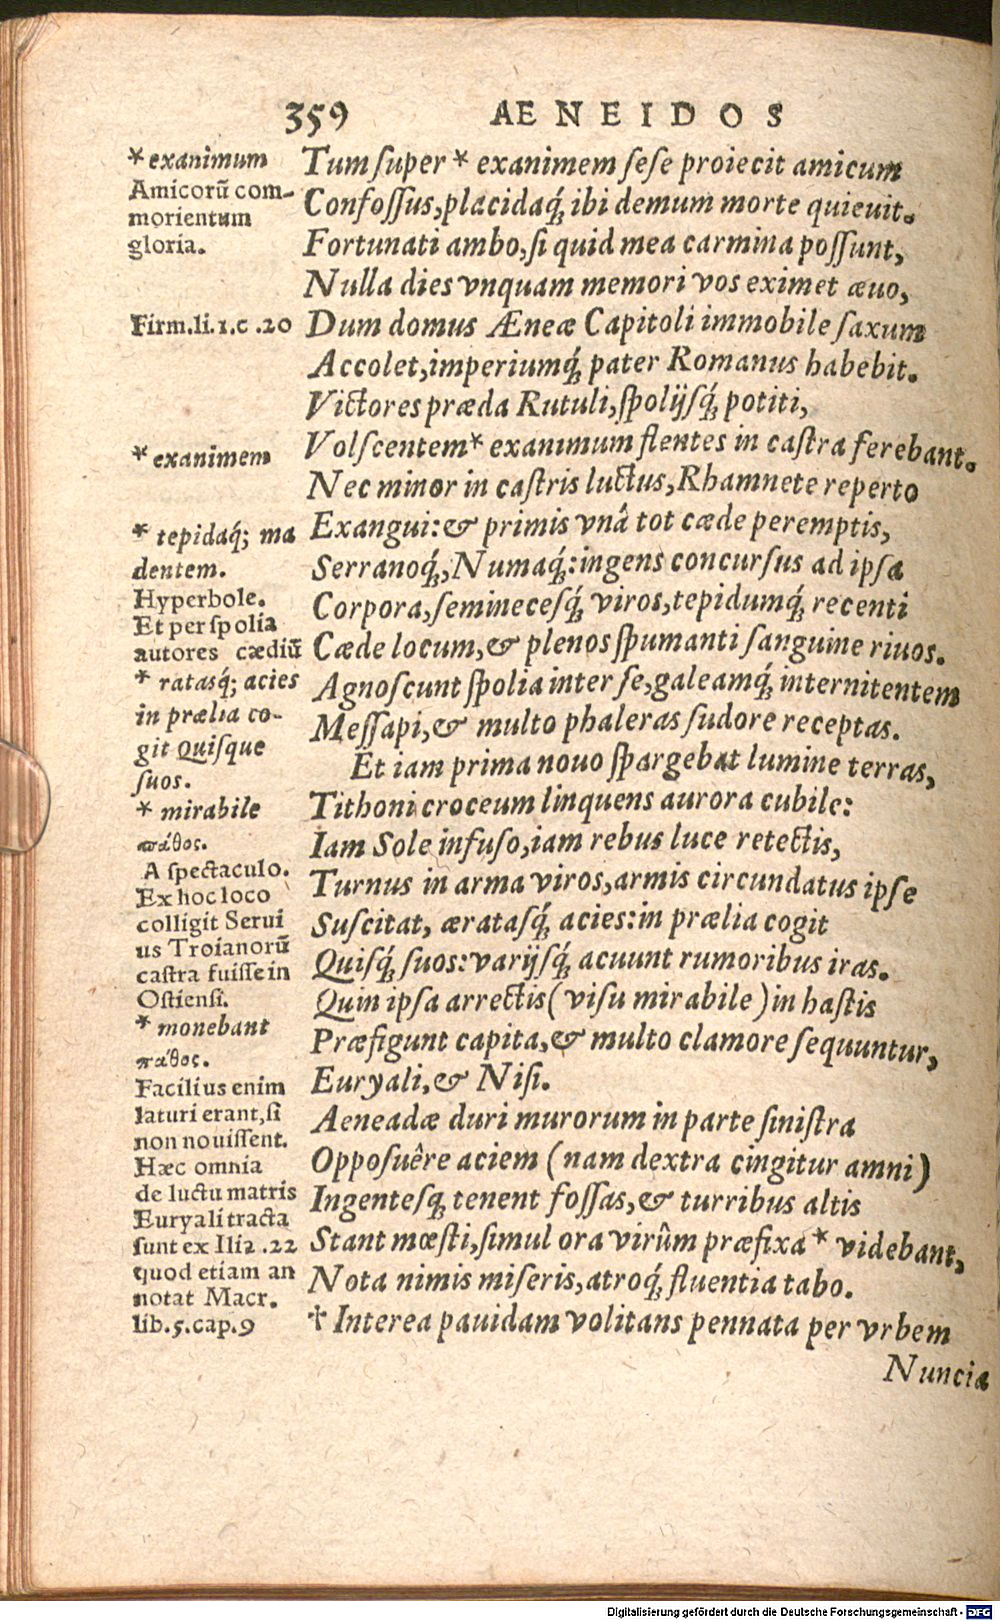 359 AENEIDOS
* exanimum
Amicorū com-
morientum
gloria.
Firm.li.1.c.20
* exanimem
* tepidaq́; ma
dentem.
Hyperbole.
Et per ſpolia
autores cædiū
* ratasq́; acies
in prælia co-
git Quiſque
ſuos.
* mirabile
πάθος.
A ſpectaculo.
Ex hoc loco
colligit Serui
us Troianorū
caſtra fuiſſe in
Oſtienſi.
* monebant
πάθος.
Facilius enim
laturi erant,ſi
non nouiſſent.
Hæc omnia
de luctu matris
Euryali tracta
ſunt ex Ilia .22
quod etiam an
notat Macr.
lib.5.cap.9
Tum ſuper * exanimem ſeſe proiecit amicum
Confoſſus,placidaq́; ibi demum morte quieuit.
Fortunati ambo,ſi quid mea carmina poſſunt,
Nulla dies vnquam memori vos eximet æuo,
Dum domus Æneæ Capitoli immobile ſaxum
Accolet,imperiumq́; pater Romanus habebit.
Victores præda Rutuli,ſpolijſq́; potiti,
Volſcentem * exanimum flentes in caſtra ferebant.
Nec minor in caſtris luctus,Rhamnete reperto
Exangui:& primis vnâ tot cæde peremptis,
Serranoq́;,Numaq́;:ingens concurſus ad ipſa
Corpora,ſemineceſq́; viros,tepidumq́; recenti
Cæde locum,& plenos ſpumanti ſanguine riuos.
Agnoſcunt ſpolia inter ſe,galeamq́; internitentem
Meſſapi,& multo phaleras ſudore receptas.
Et iam prima nouo ſpargebat lumine terras,
Tithoni croceum linquens aurora cubile:
Iam Sole infuſo,iam rebus luce retectis,
Turnus in arma viros,armis circundatus ipſe
Suſcitat, ærataſq́; acies:in prælia cogit
Quiſq́; ſuos:varijſq́; acuunt rumoribus iras.
Quin ipſa arrectis (viſu mirabile) in haſtis
Præfigunt capita,& multo clamore ſequuntur,
Euryali,& Niſi.
Aeneadæ duri murorum in parte ſiniſtra
Oppoſuêre aciem (nam dextra cingitur amni)
Ingenteſq́; tenent foſſas,& turribus altis
Stant mœſti,ſimul ora virûm præfixa * videbant,
Nota nimis miſeris,atroq́; fluentia tabo.
† Interea pauidam volitans pennata per vrbem
Nuncia
Digitalisierung gefördert durch die Deutsche Forschungsgemeinschaft - DFG